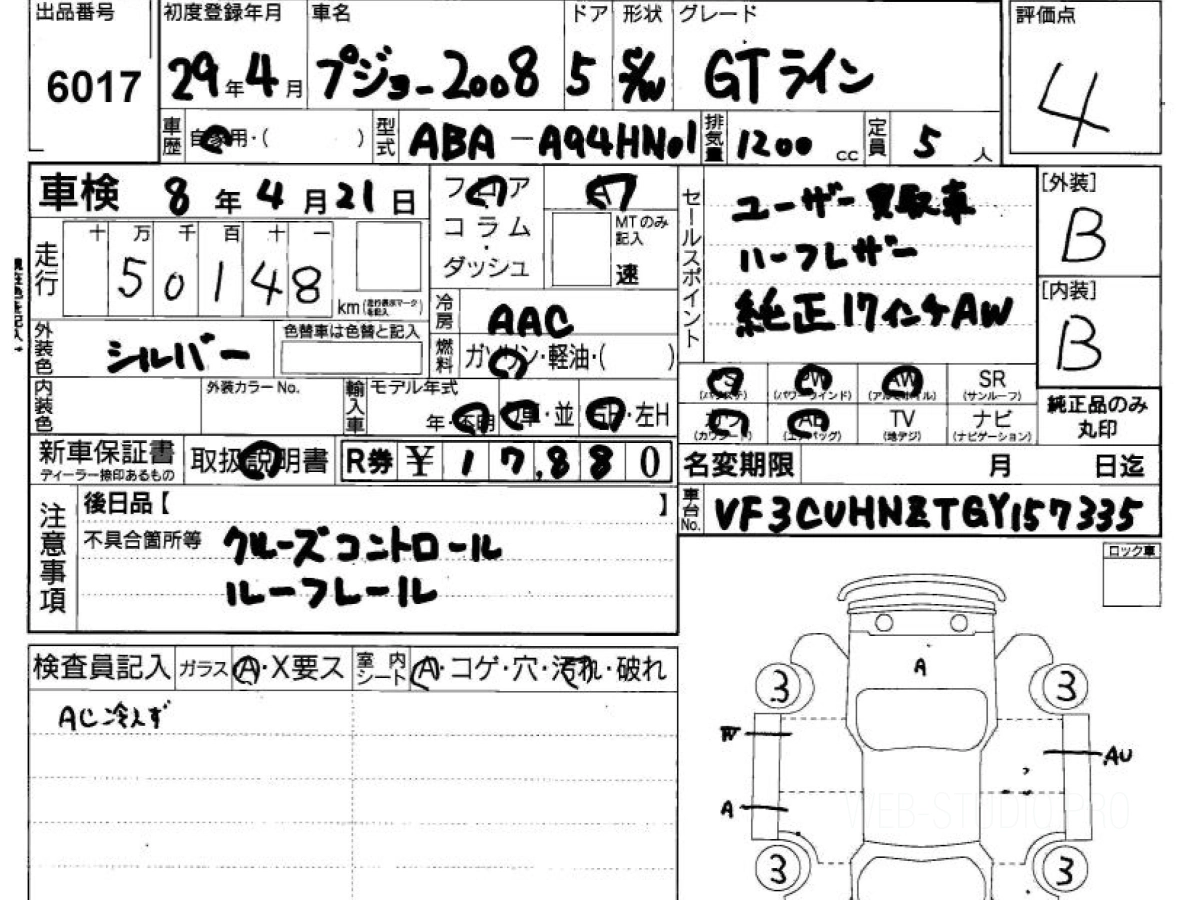 出品番号 初度登録年月 車名 ドア 形状 グレード 評価点
6017 29年4月 プジョー2008 5 S/W GTライン 4
車歴 自家用・( ) 型式 ABA-A94HN01 排気量 1200cc 定員 5人
車検 8年4月21日 フロア AT セールスポイント ユーザー買取車 [外装] B
コラム・ダッシュ MTのみ記入 速 ハーフレザー
走行 十万千百十一 50148 km (走行表示マークを記入)
冷房 AAC 純正17インチAW [内装] B
外装色 シルバー 色替車は色替と記入 燃料 ガソリン・軽油・( )
内装色 外装カラーNo. 輸入車 モデル年式 年・不明 D車・並 右H・左H
PS (パワステ) PW (パワーウインド) AW (アルミホイル) SR (サンルーフ)
カワ (カワシート) AB (エアバッグ) TV (地デジ) ナビ (ナビゲーション)
純正品のみ丸印
新車保証書 ディーラー捺印あるもの 取扱説明書 R券 ¥ 17,880 名変期限 月 日迄
注意事項 後日品【 】 車台No. VF3CUHNZTGY157335
不具合箇所等 クルーズコントロール
ルーフレール
ロック車
検査員記入 ガラス A・X要ス 室内シート A・コゲ・穴・汚れ・破れ
AC冷えず
A
3 3
W AU
A
3 3
WEB-STUDIO.PRO